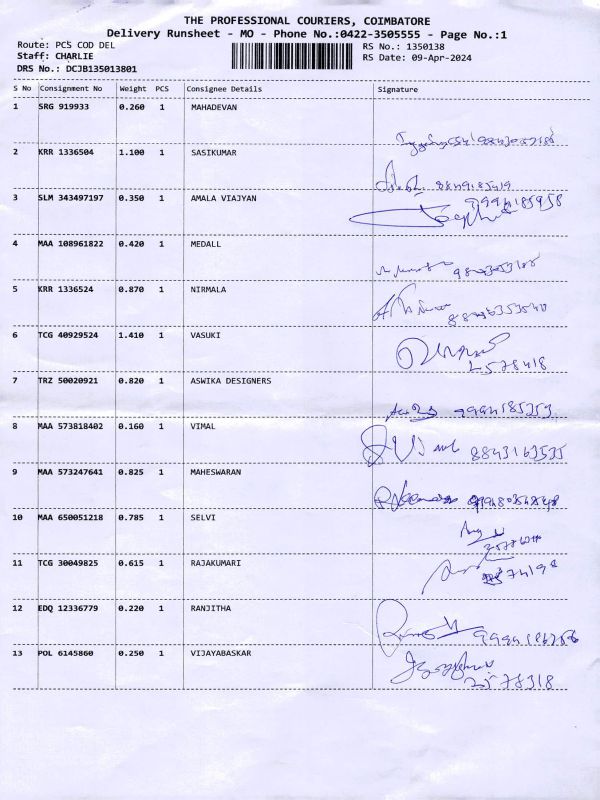 THE PROFESSIONAL COURIERS, COIMBATORE
Delivery Runsheet - MO - Phone No.:0422-3505555 - Page No.:1
Route: PCS COD DEL RS No.: 1350138
Staff: CHARLIE RS Date: 09-Apr-2024
DRS No.: DCJB135013801
S No Consignment No Weight PCS Consignee Details Signature
1 SRG 919933 0.260 1 MAHADEVAN
2 KRR 1336504 1.100 1 SASIKUMAR
3 SLM 343497197 0.350 1 AMALA VIAJYAN
9994185958
4 MAA 108961822 0.420 1 MEDALL
5 KRR 1336524 0.870 1 NIRMALA
6 TCG 40929524 1.410 1 VASUKI
2578418
7 TRZ 50020921 0.820 1 ASWIKA DESIGNERS
9994185353
8 MAA 573818402 0.160 1 VIMAL
8843163535
9 MAA 573247641 0.825 1 MAHESWARAN
10 MAA 650051218 0.785 1 SELVI
11 TCG 30049825 0.615 1 RAJAKUMARI
12 EDQ 12336779 0.220 1 RANJITHA
13 POL 6145860 0.250 1 VIJAYABASKAR
2578318